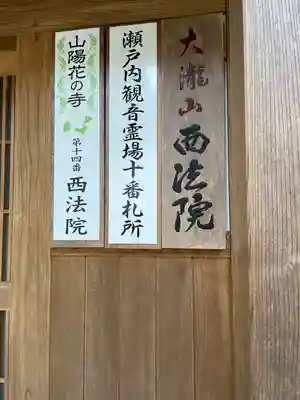 大瀧山西法院
瀬戸内観音霊場十番札所
山陽花の寺
第十四番 西法院